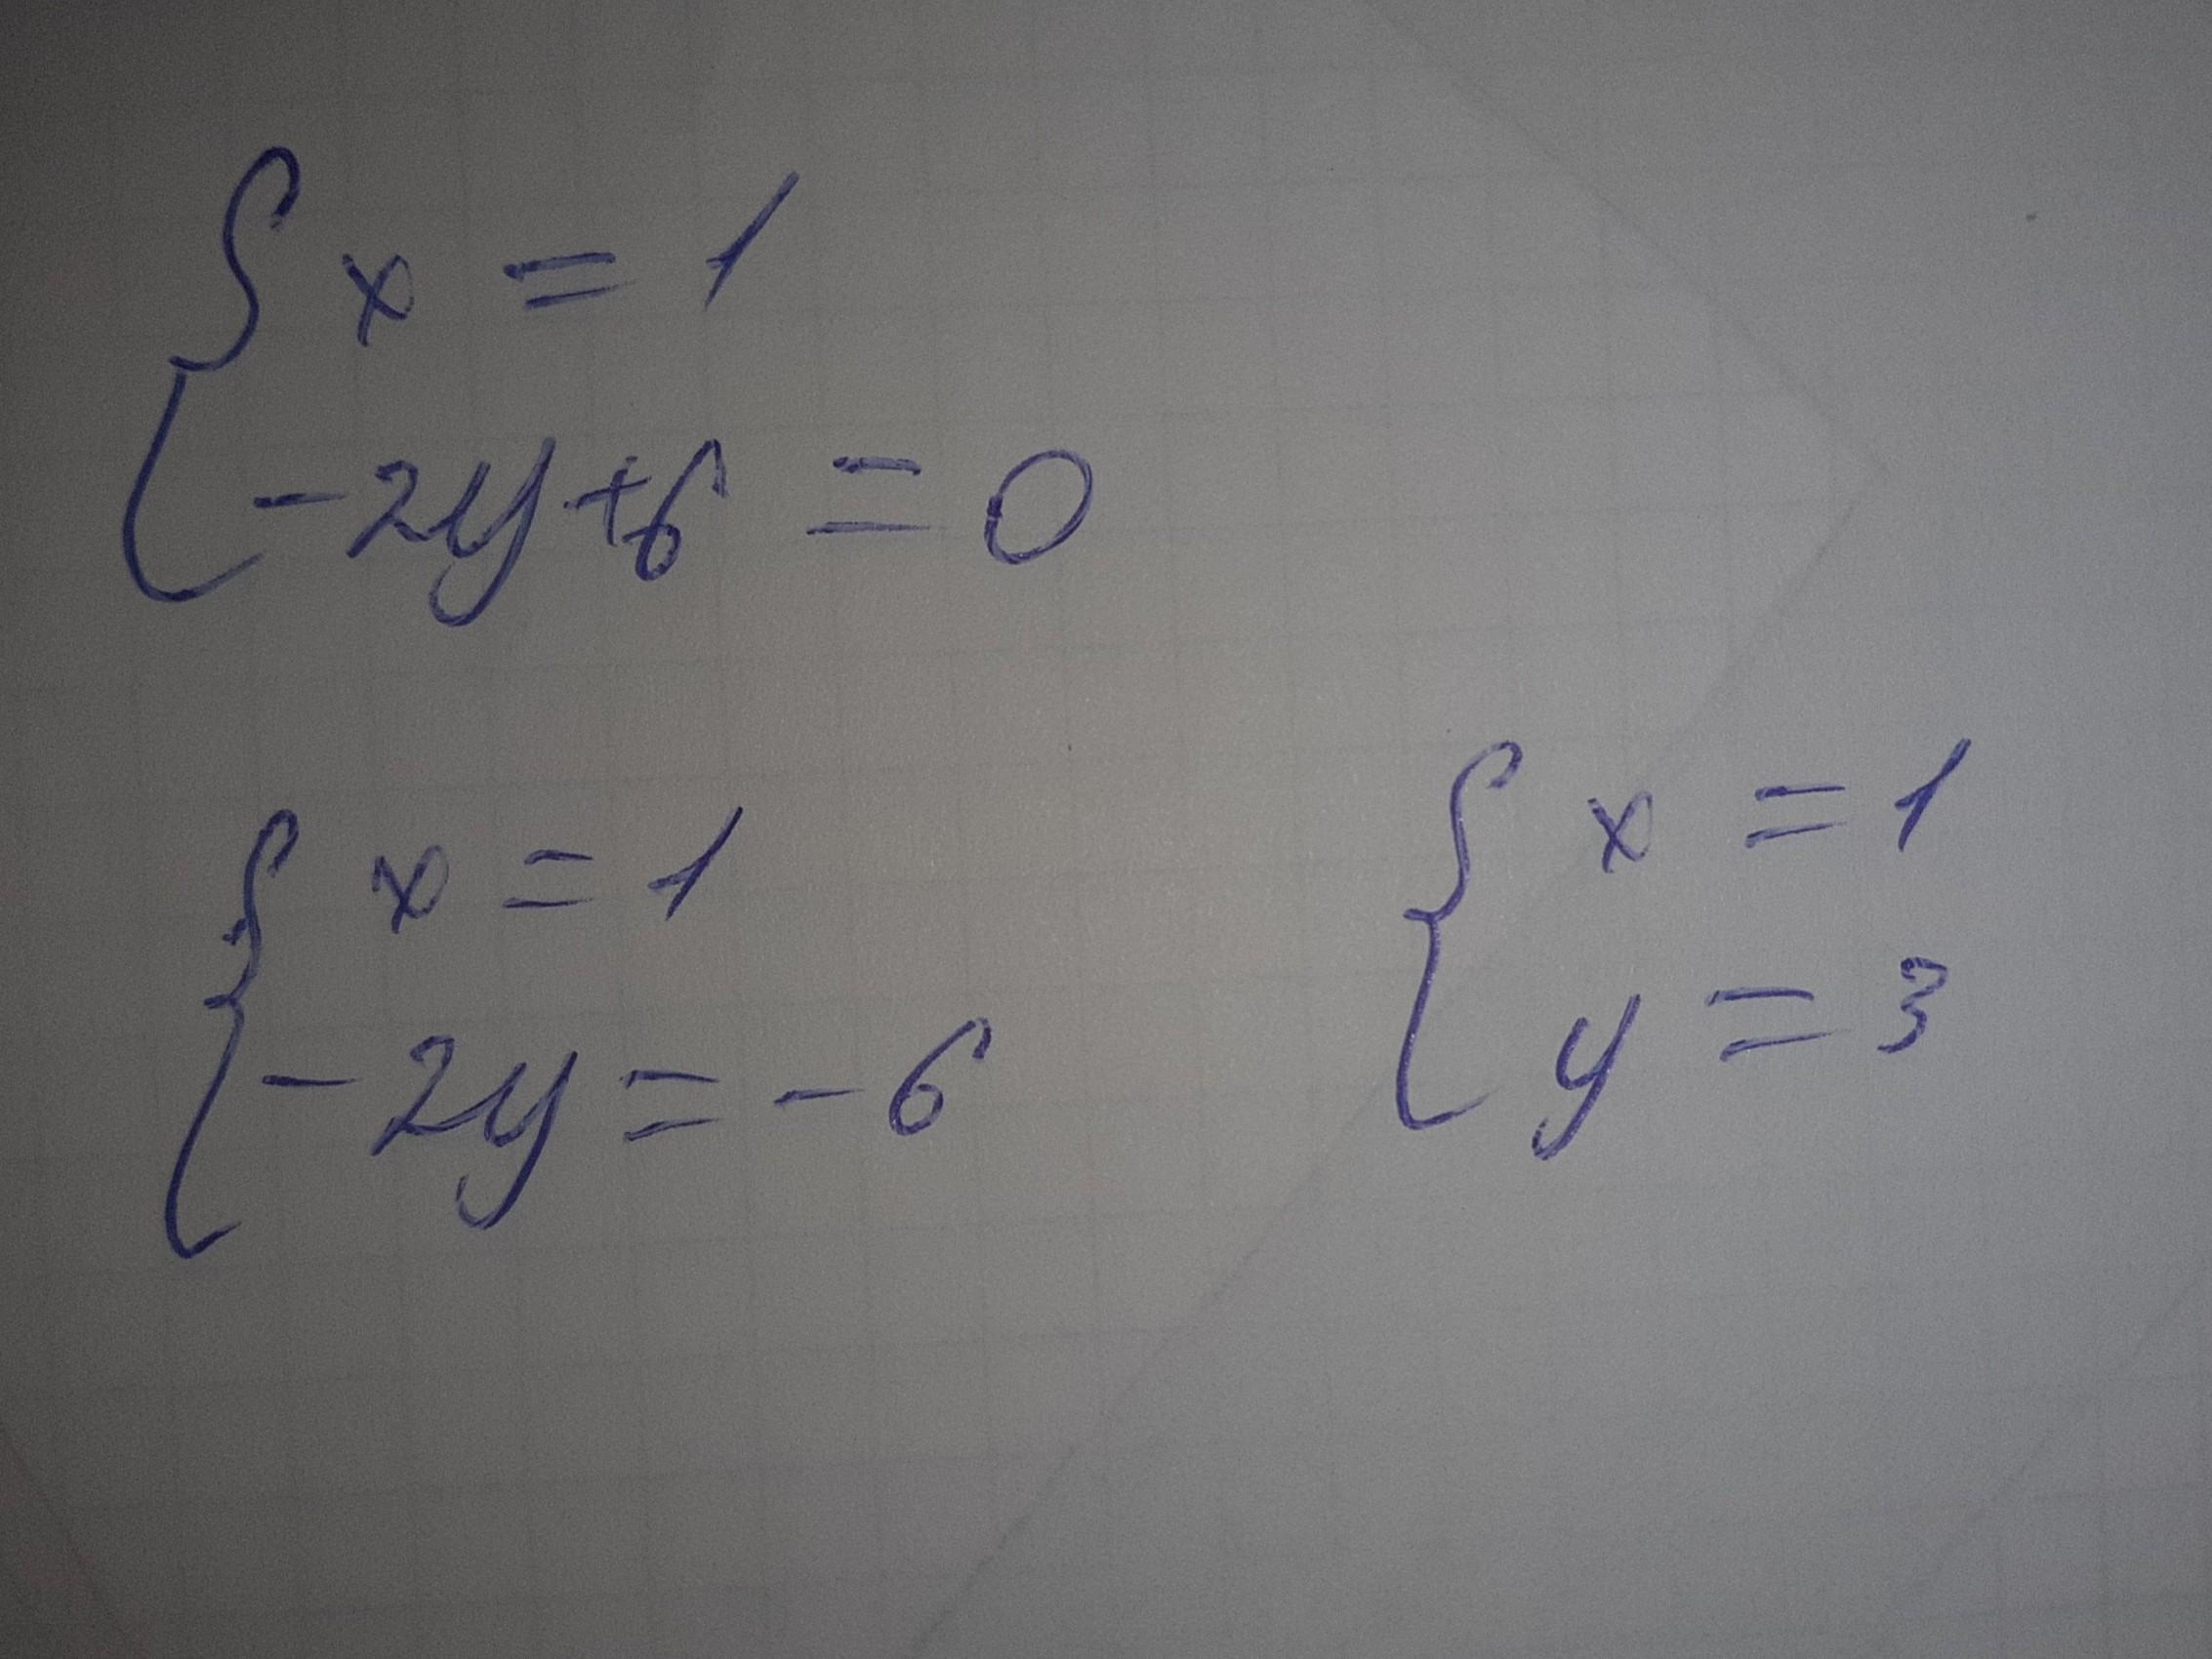 x = 1
-2y+6 = 0
x = 1
-2y = -6
x = 1
y = 3